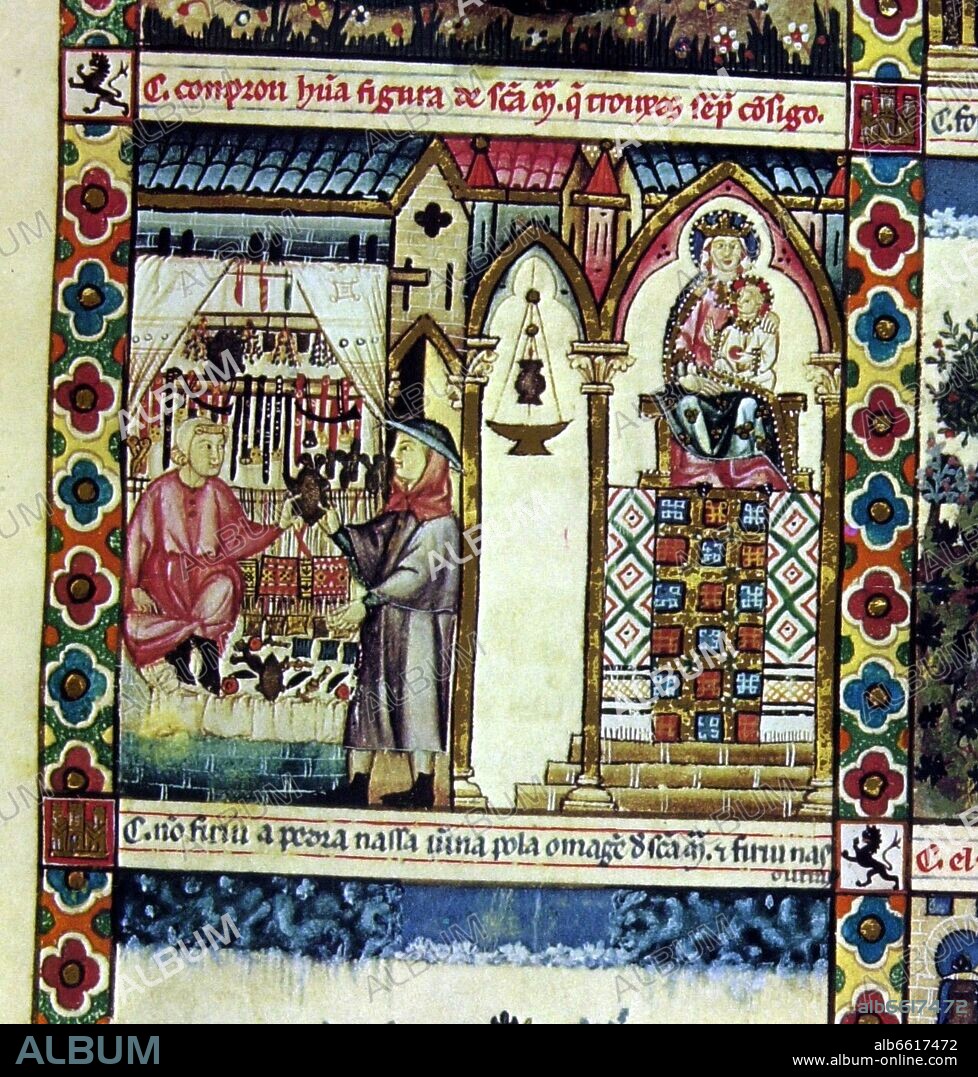 C. conpron hũa figura de sc̃a m̃. q̃ trouxes senp̃ cõsigo.
C. fo
C. nõ firiu a pedra nassa viña pola omagẽ d sc̃a m̃. ⁊ firiu nas
outras
C. el
ALBUM
alb6617472
ALBUM
alb6617472
www.album-online.com